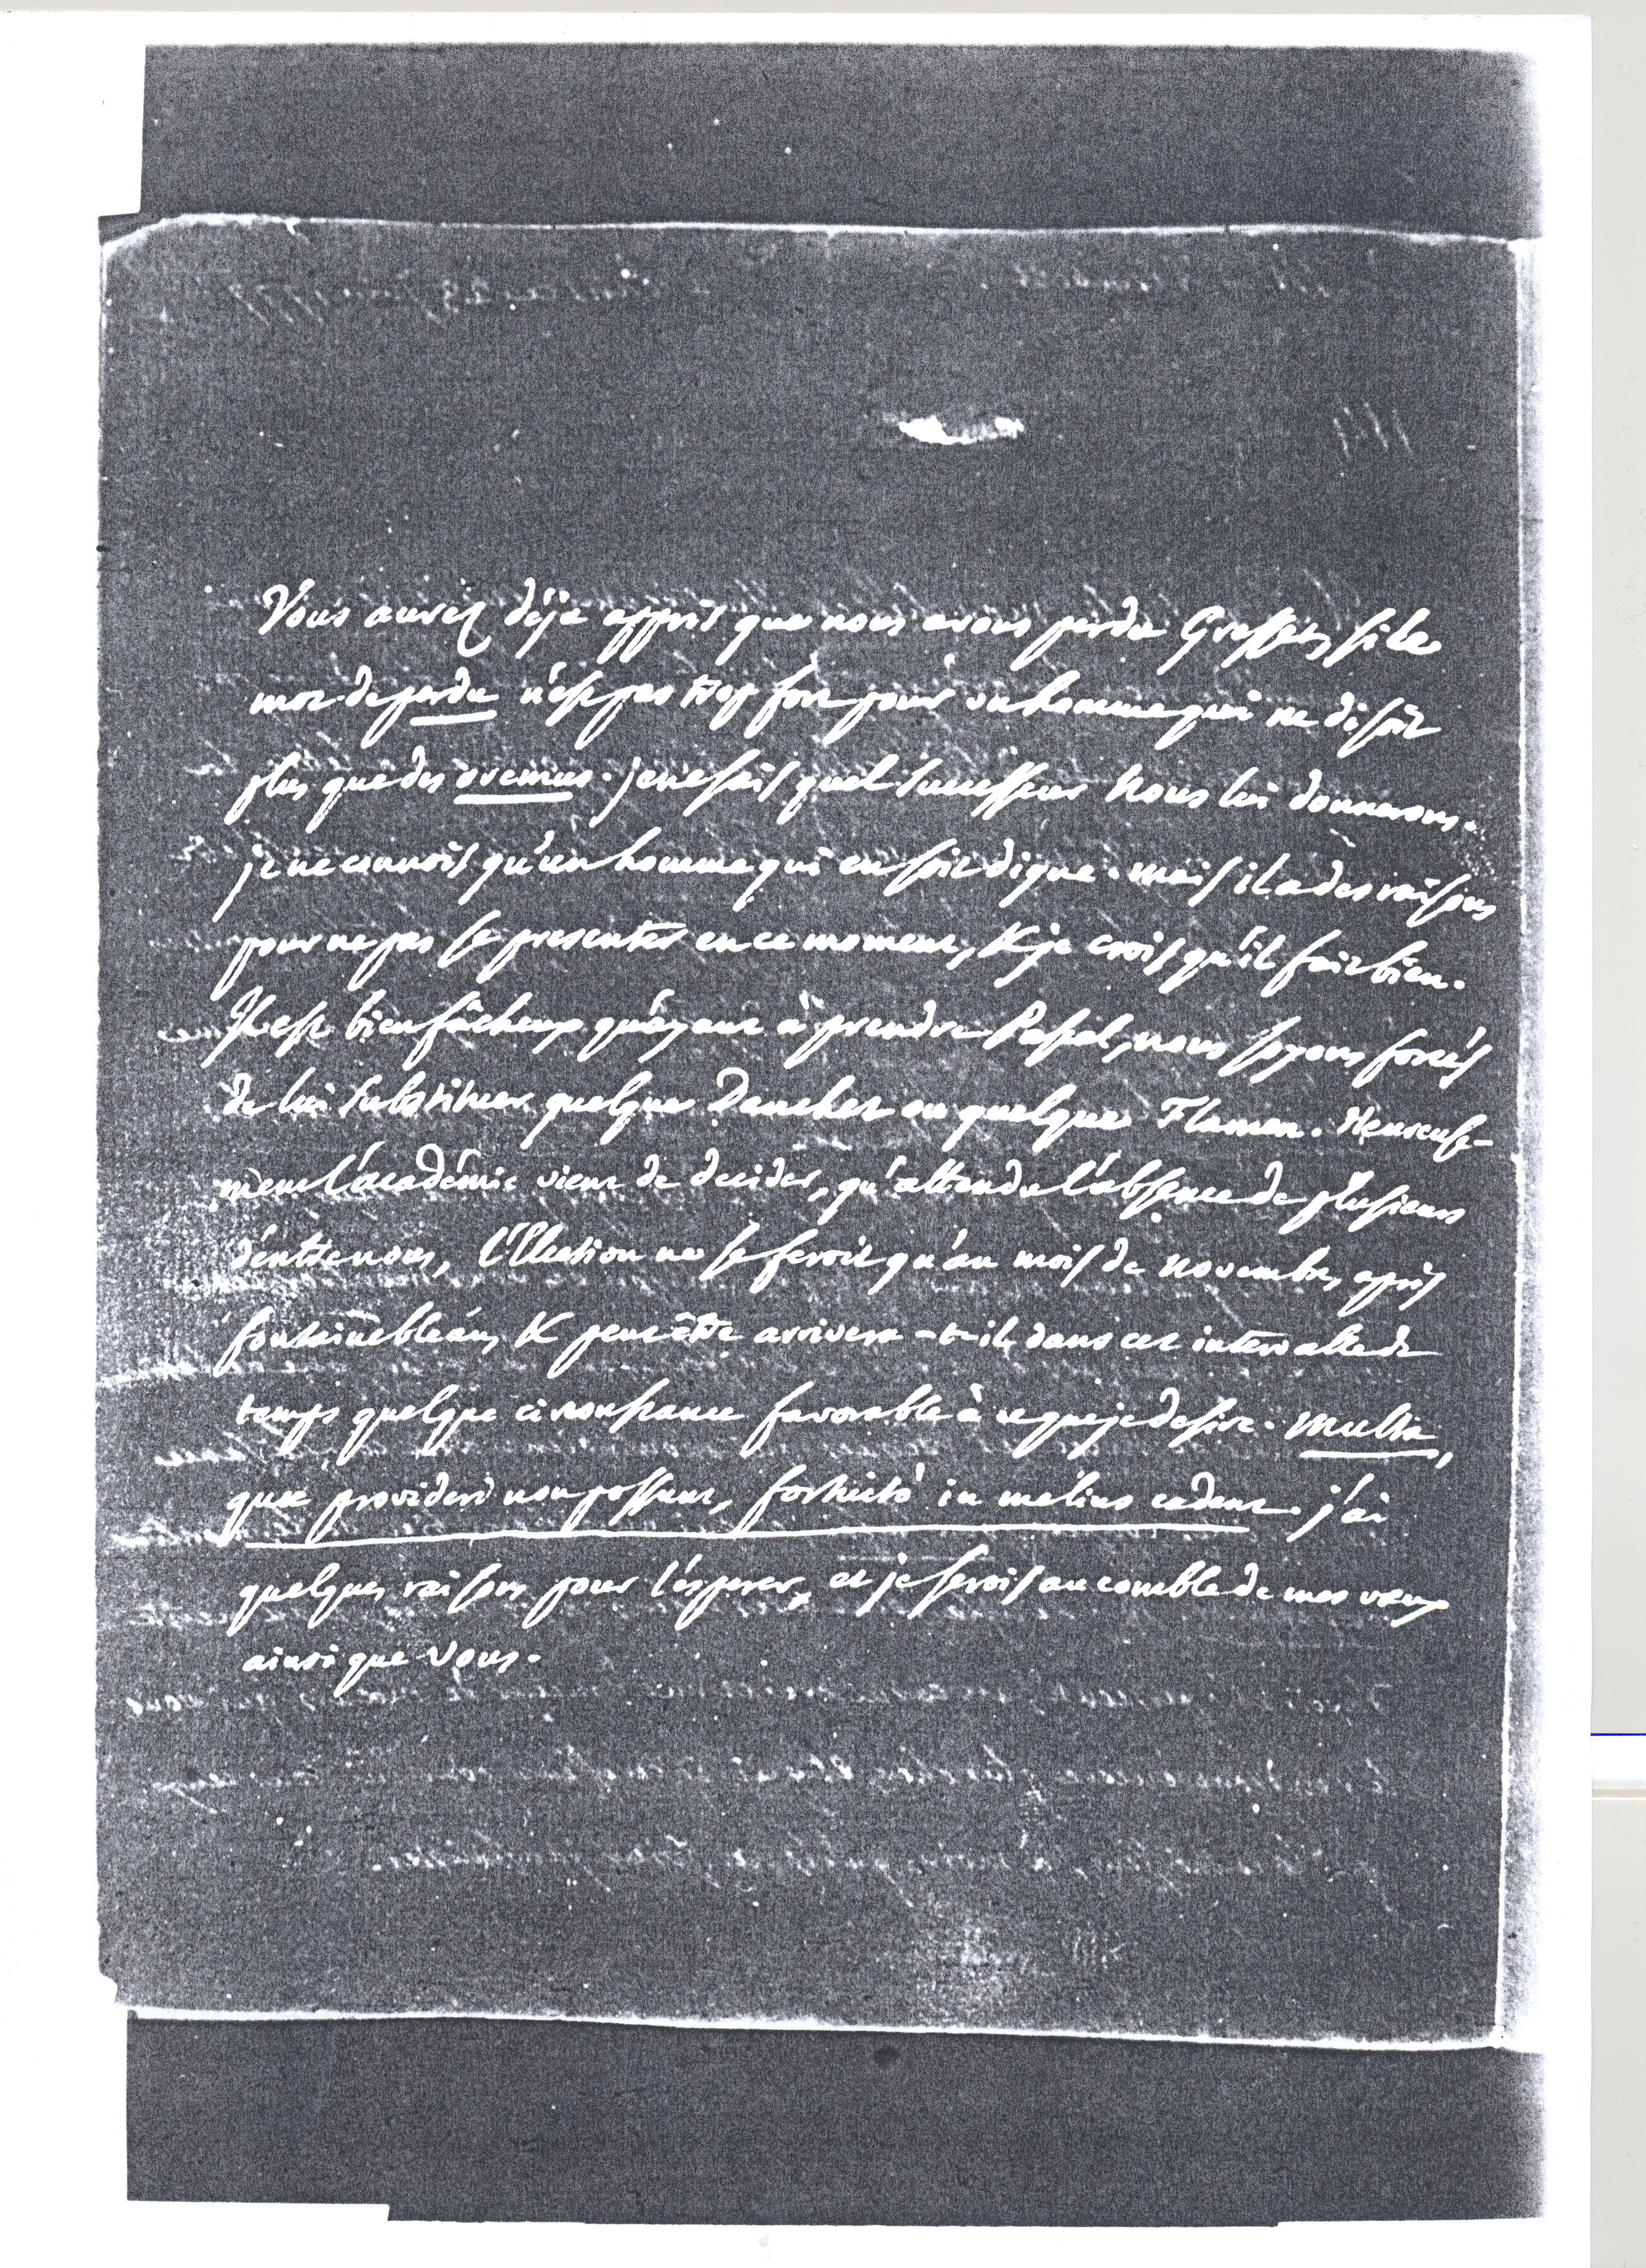 Vous aurez déja appris que nous avons perdu Gresset, si le
mot de perdu n'est pas trop fort pour un homme qui ne disoit
plus que des oremus. je ne sais quel successeur nous lui donnerons.
je ne connois qu'un homme qui en soit digne. mais il a des raisons
pour ne pas se presenter en ce moment, & je crois qu'il fait bien.
Il est bien fâcheux qu'ayant à prendre Pascal, nous soyons forcés
de lui substituer quelque Danchet ou quelque Flaman. Heureuse-
ment l'académie vient de decider, qu'attendu l'absence de plusieurs
d'entre nous, l'Election ne se feroit qu'au mois de novembre, après
fontainebleau, & peut être arrivera-t-il, dans cet intervalle de
temps quelque circonstance favorable à ce que je desire. Multa,
quae provideri non possunt, fortuitò in melius cadent. j'ai
quelques raisons pour l'espérer, et je serois au comble de mes vœux
ainsi que vous.